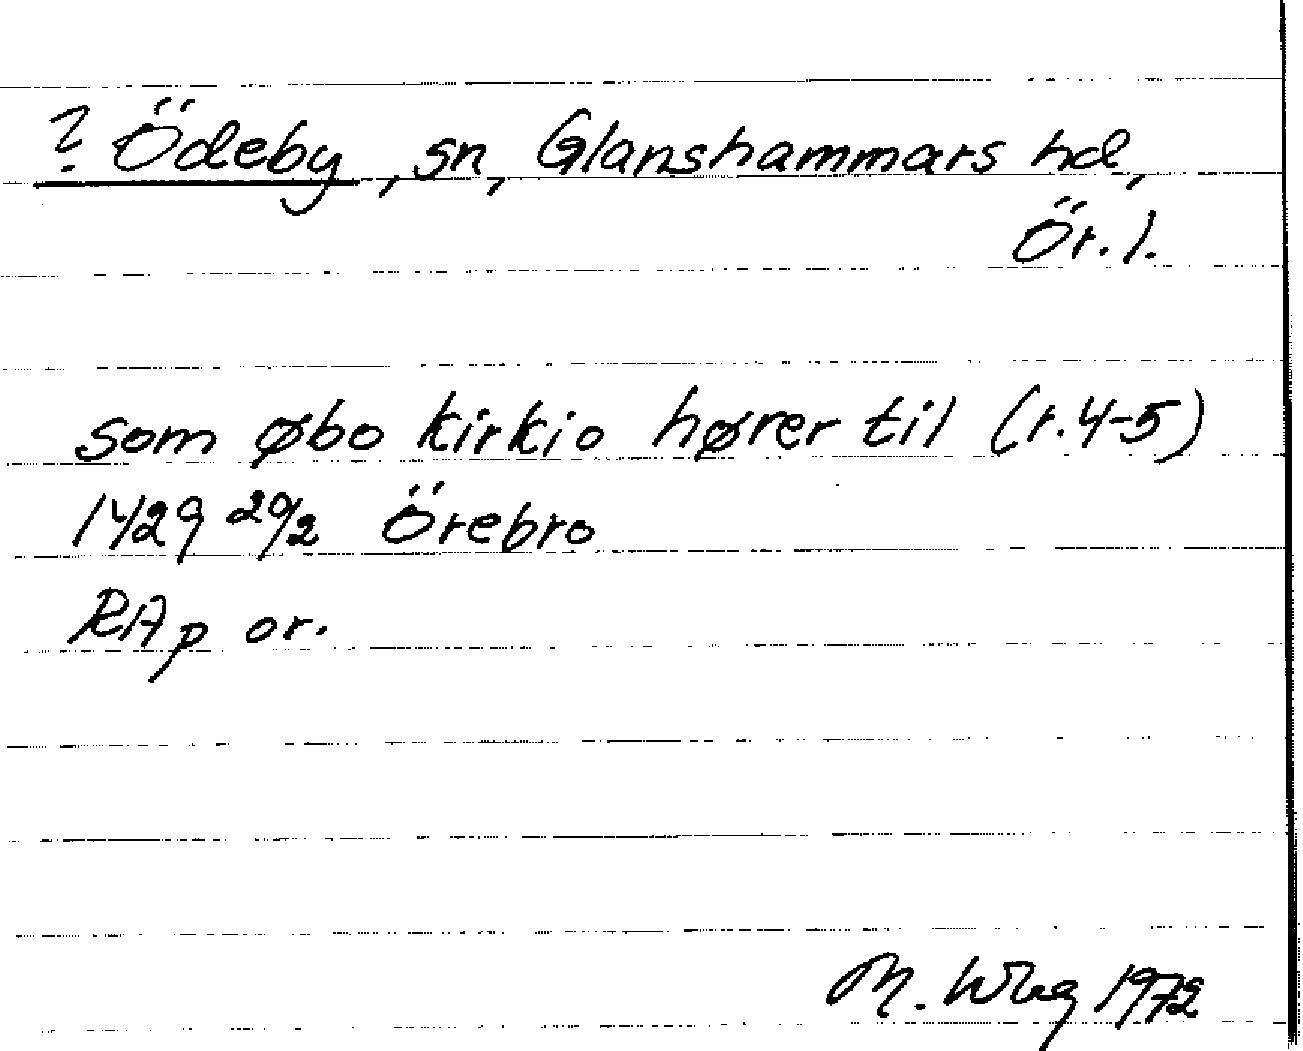 ? Ödeby, sn, Glanshammars hd,
Ör. l.
som øbo kirkio hører til (r. 4-5)
1429 20/2 Örebro
RAp or.
M. Wbg 1972